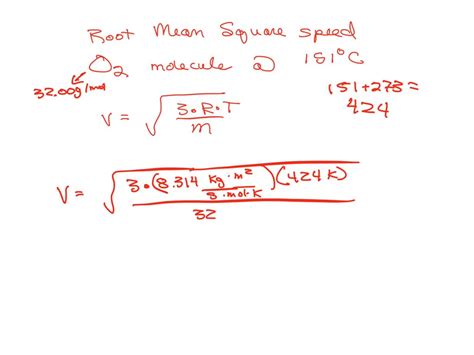 Root Mean Square speed
O₂ molecule @ 151°C
32.00g/mol
151+273=
424
V = √(3•R•T / m)
V = √(3•(8.314 kg•m² / s•mol•K)(424K) / 32